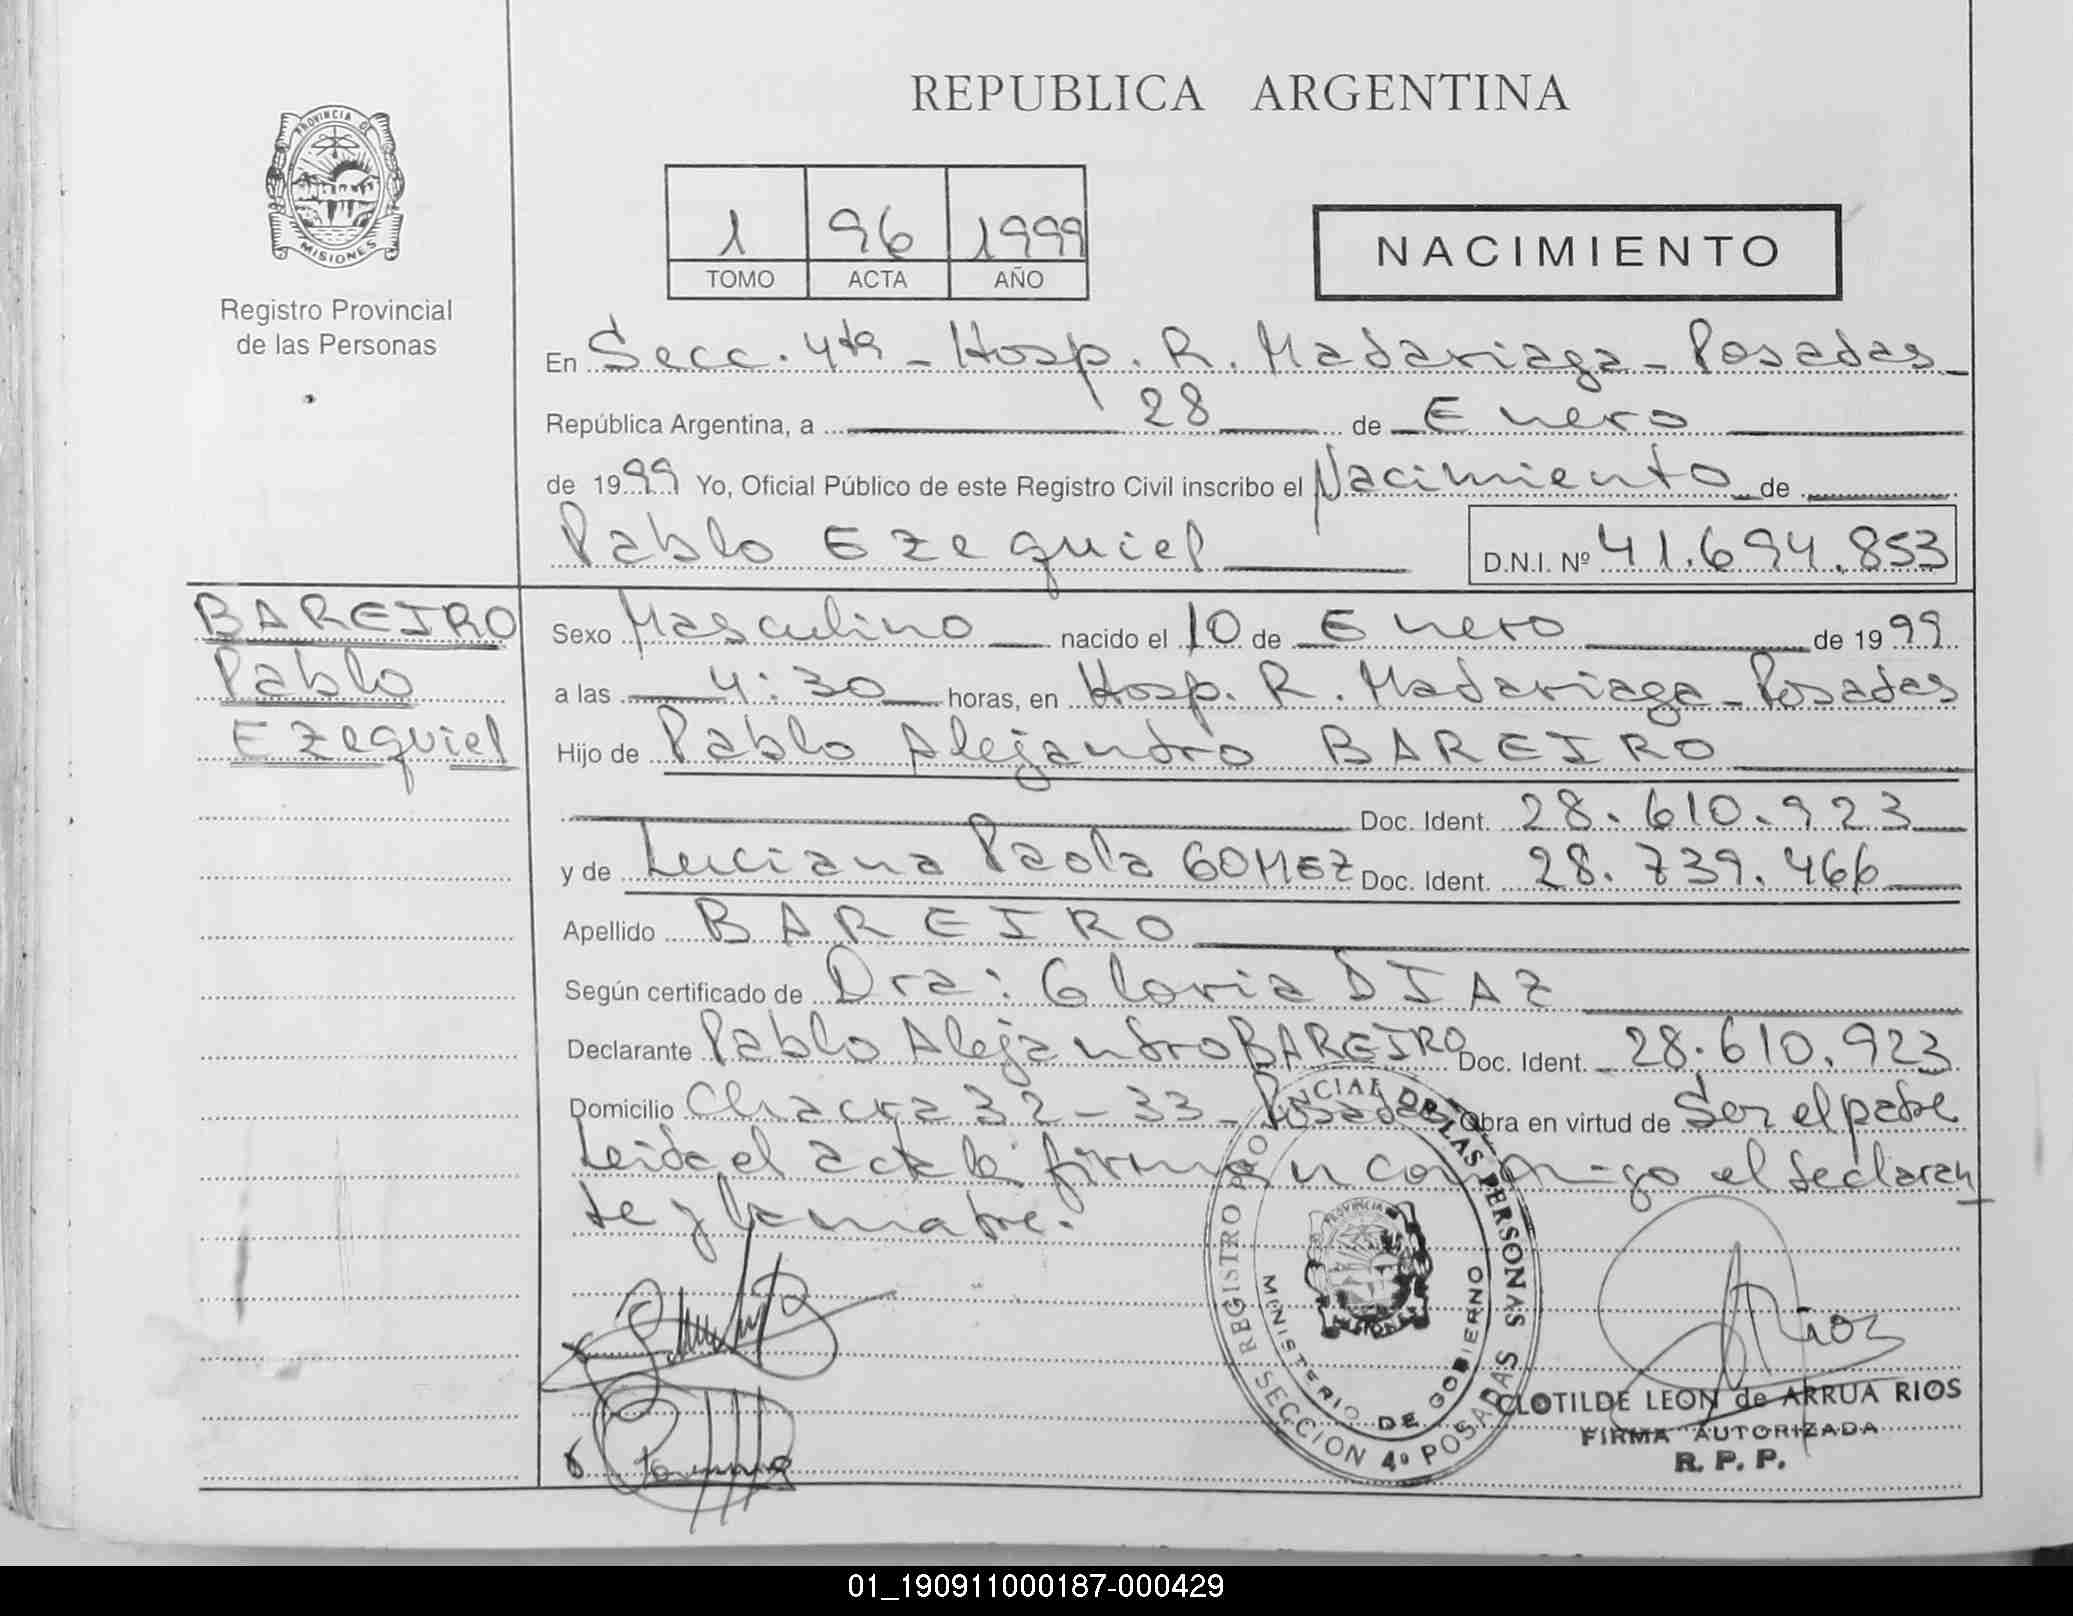 REPUBLICA ARGENTINA
PROVINCIA DE
MISIONES
Registro Provincial
de las Personas
1 96 1999
TOMO ACTA AÑO
NACIMIENTO
En Secc. 4ta - Hosp. R. Madariaga - Posadas
República Argentina, a 28 de Enero
de 1999 Yo, Oficial Público de este Registro Civil inscribo el Nacimiento de
Pablo Ezequiel D.N.I. Nº 41.694.853
BAREIRO
Pablo
Ezequiel
Sexo Masculino nacido el 10 de Enero de 1999
a las 4:30 horas, en Hosp. R. Madariaga - Posadas
Hijo de Pablo Alejandro BAREIRO
Doc. Ident. 28.610.923
y de Luciana Paola GOMEZ Doc. Ident. 28.739.466
Apellido BAREIRO
Según certificado de Dra: Gloria DIAZ
Declarante Pablo Alejandro BAREIRO Doc. Ident. 28.610.923
Domicilio Chacra 32-33 - Posadas Obra en virtud de Ser el padre
Leida el acta la firman conmigo el declaran
te y la madre.
REGISTRO PROVINCIAL DE LAS PERSONAS
SECCION 4º POSADAS
MINISTERIO DE GOBIERNO
PROVINCIA
MISIONES
Rios
CLOTILDE LEON de ARRUA RIOS
FIRMA AUTORIZADA
R. P. P.
01_190911000187-000429